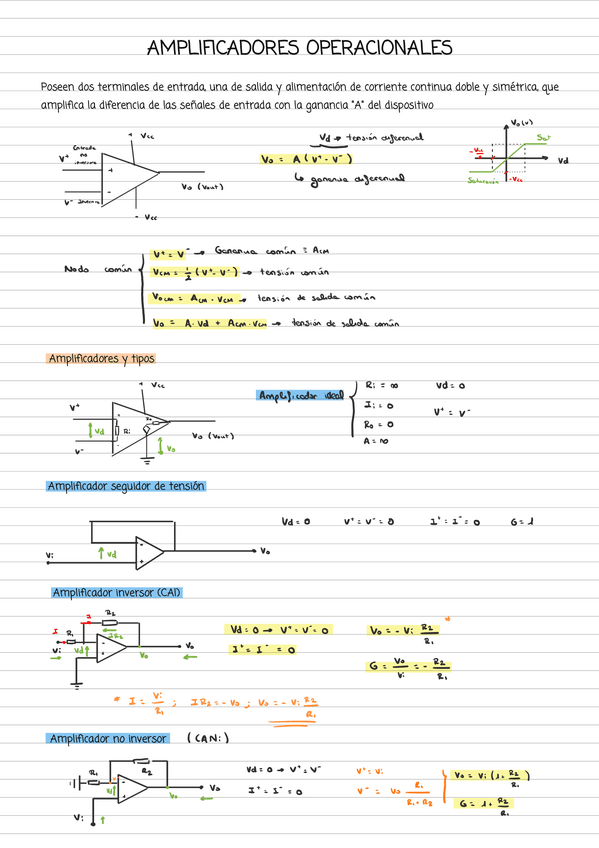 AMPLIFICADORES OPERACIONALES
Poseen dos terminales de entrada, una de salida y alimentación de corriente continua doble y simétrica, que
amplifica la diferencia de las señales de entrada con la ganancia "A" del dispositivo
+ Vcc
Entrada no inversora
V+
+
-
V- Inversora
Vo (Vout)
- Vcc
Vd → tensión diferencial
Vo = A (V+ - V-)
↳ ganancia diferencial
Vo (V)
Sat
-Vcc
Vd
Saturación
-Vcc
Nodo común
V+ = V- → Ganancia común = ACM
VCM = 1/2 (V+ - V-) → tensión común
VOCM = ACM · VCM → tensión de salida común
Vo = A · Vd + ACM · VCM → tensión de salida común
Amplificadores y tipos
+ Vcc
V+
Vd
Ri
Ro
Vo (Vout)
V-
Vo
Amplificador ideal
Ri = ∞
Ii = 0
Ro = 0
A = ∞
Vd = 0
V+ = V-
Amplificador seguidor de tensión
Vi
Vd
Vo
Vd = 0 V+ = V- = 0 I+ = I- = 0 G = 1
Amplificador inversor (CAI)
I
R2
I R1
IR2
Vi
Vd
Vo
Vo
Vd = 0 → V+ = V- = 0
I+ = I- = 0
Vo = - Vi R2/R1 *
G = Vo/Vi = - R2/R1
* I = Vi/R1 ; IR2 = - Vo ; Vo = - Vi R2/R1
Amplificador no inversor (CANi)
R1
R2
Vo
Vo
Vi
Vd = 0 → V+ = V-
I+ = I- = 0
V+ = Vi
V- = Vo R1/(R1 + R2)
Vo = Vi (1 + R2/R1)
G = 1 + R2/R1